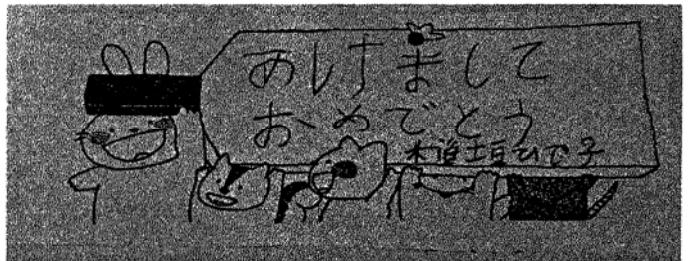 あけまして
おめでとう
垣ひで子